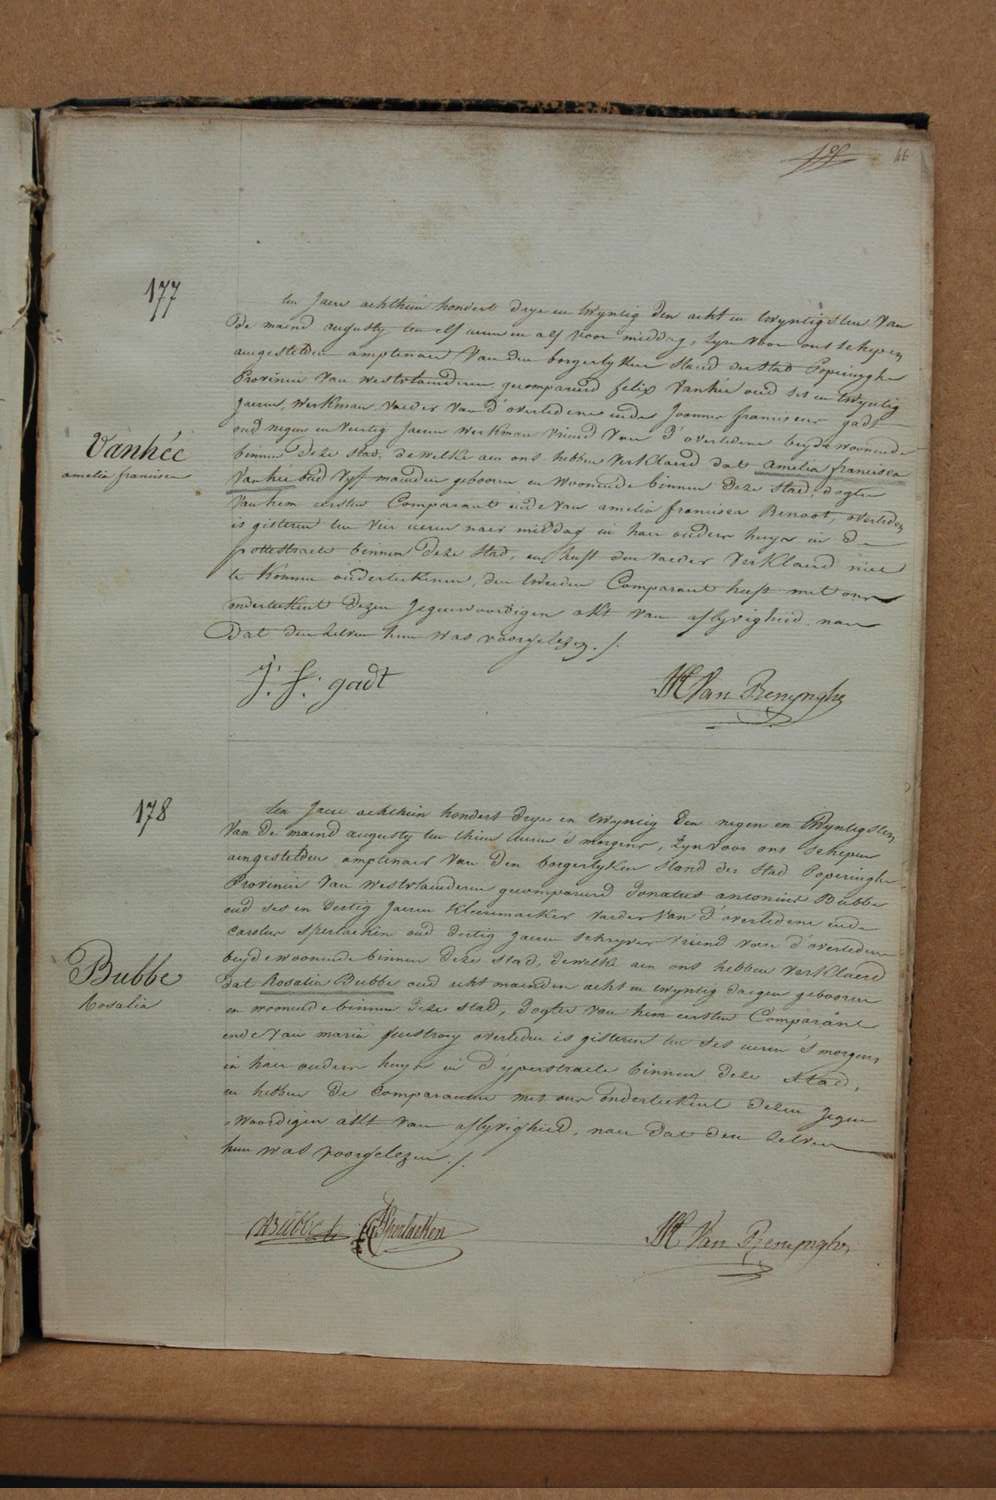 46
177
Vanhée
amelia francisca
ten Jaere achthien hondert drye en twyntig den acht en twyntigsten van
de maend augusty ten elf uren en alf voor middag, zyn voor ons schepen
aengestelden amptenaer van den borgerlyken stand der stad Poperinghe
Provincie van westvlaenderen, gecompareerd felix vanhée oud ses en twyntig
Jaeren, werkman vaeder van d'overledene ende Joannes franciscus gadt
oud negen en veertig Jaeren werkman vriend van d'overledene beyde woonende
binnen deze stad, dewelke aen ons hebben verklaerd dat amelia francisca
Vanhée oud vyf maenden gebooren en woonende binnen deze stad, dogter
van hem eersten Comparant ende van amelia francisca Benoot, overleden
is gisteren ten vier ueren naer middag in haer ouders huys in de
pottestraete binnen deze stad, en heeft den vaeder verklaerd niet
te konnen onderteekenen, den tweeden Comparant heeft met ons
onderteekent dezen Jegenwoordigen akt van aflyvigheid naer
dat den zelven hun was voorgelezen. /.
J. f. gadt
Van Renynghe
178
Bubbe
Rosalia
ten Jaere achthien hondert drye en twyntig den negen en twyntigsten
van de maend augusty ten thien ueren 's morgens, zyn voor ons schepen
aengestelden amptenaer van den borgerlyken stand der stad Poperinghe
Provincie van westvlaenderen gecompareerd Donatus antonius Bubbe
oud ses en dertig Jaeren kleermaeker vaeder van d'overledene ende
Carolus sperlaeken oud dertig Jaeren schryver vriend van d'overledene
beyde woonende binnen deze stad, dewelke aen ons hebben verklaerd
dat Rosalia Bubbe oud acht maenden acht en twyntig daegen gebooren
en woonende binnen deze stad, dogter van hem eersten Comparant
ende van maria overleden is gisteren ten ses ueren 's morgens
in haer ouders huys in d'yperstraete binnen deze stad,
en hebben de comparanten met ons onderteekent dezen Jegen
woordigen akt van aflyvigheid, naer dat den zelven
hun was voorgelezen. /.
Bubbe Sperlaeken
Van Renynghe